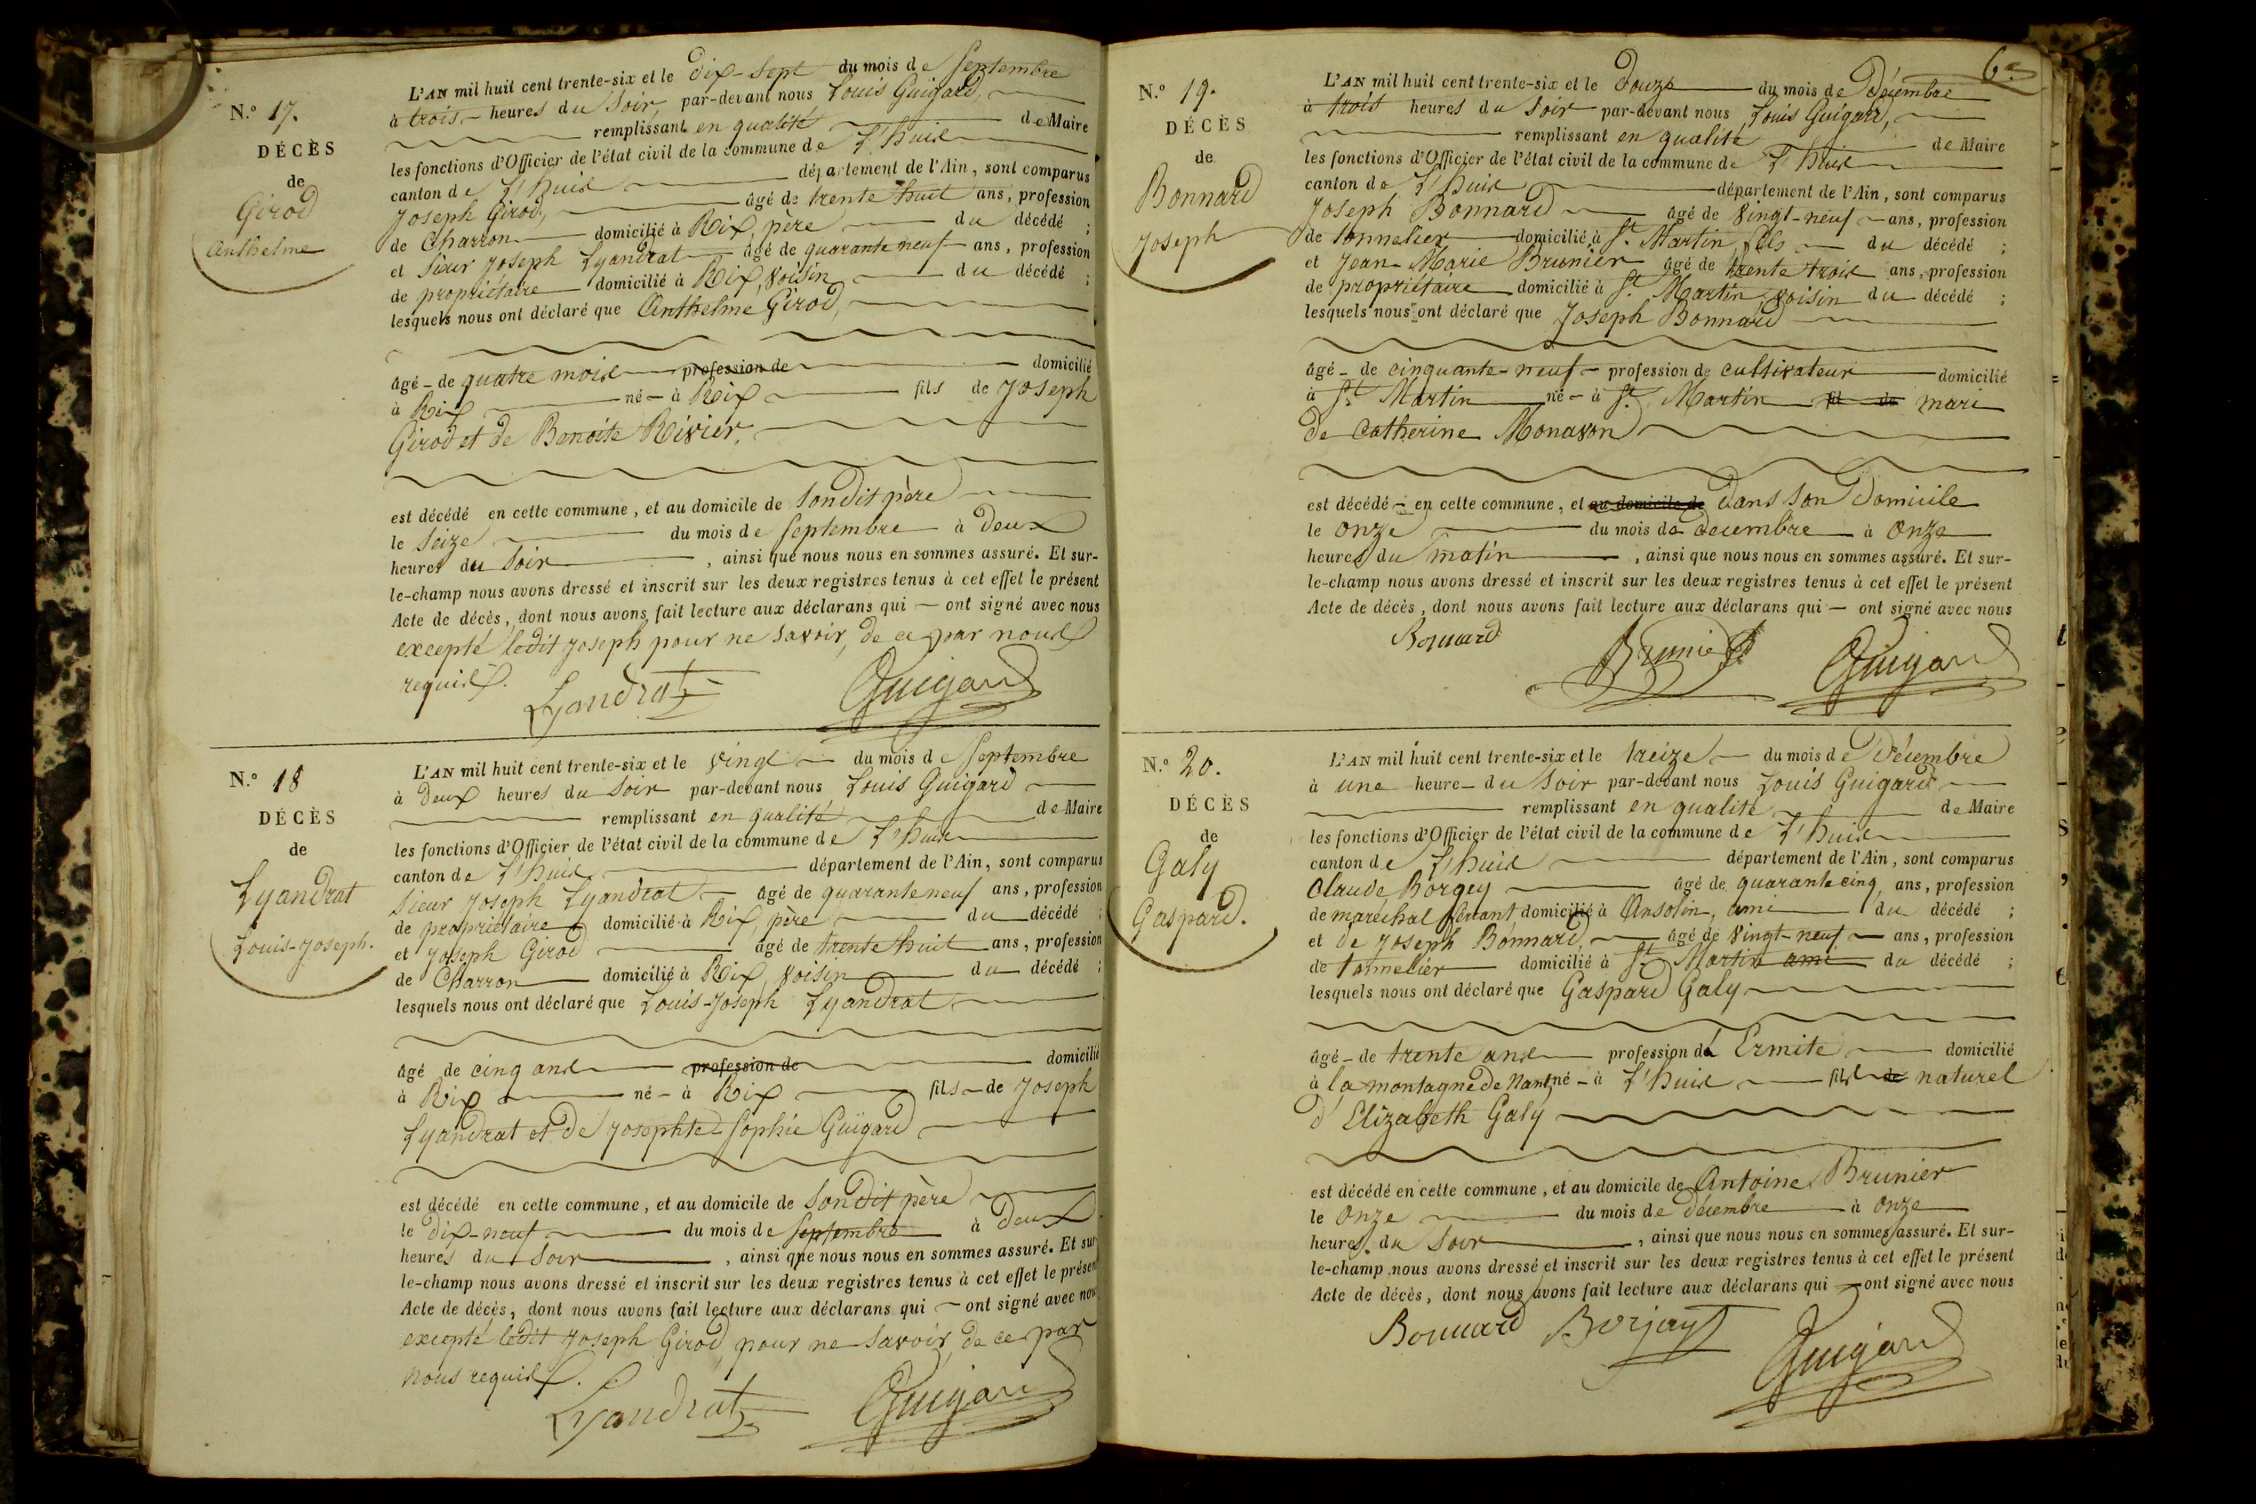 N.º 17.
DÉCÈS
de
Girod
Anthelme
L'AN mil huit cent trente-six et le dix-sept du mois de Septembre
à trois heures du Soir par-devant nous Louis Guigard,
remplissant en qualité de Maire
les fonctions d'Officier de l'état civil de la commune de L'huis
canton de L'huis département de l'Ain, sont comparus
Joseph Girod, âgé de trente huit ans, profession
de Charron domicilié à Rix, père du décédé ;
et Sieur Joseph Lyandrat âgé de quarante neuf ans, profession
de propriétaire domicilié à Rix, voisin du décédé ;
lesquels nous ont déclaré que Anthelme Girod,
âgé de quatre mois profession de domicilié
à Rix né à Rix fils de Joseph
Girod et de Benoite Rivier,
est décédé en cette commune, et au domicile de Sondit père
le Seize du mois de Septembre à Deux
heures du Soir, ainsi que nous nous en sommes assuré. Et sur-
le-champ nous avons dressé et inscrit sur les deux registres tenus à cet effet le présent
Acte de décès, dont nous avons fait lecture aux déclarans qui ont signé avec nous
excepté ledit Joseph pour ne savoir, de ce par nous
requis.
Lyandrat Guigard
N.º 18
DÉCÈS
de
Lyandrat
Louis-Joseph.
L'AN mil huit cent trente-six et le vingt du mois de Septembre
à Deux heures du Soir par-devant nous Louis Guigard
remplissant en qualité de Maire
les fonctions d'Officier de l'état civil de la commune de L'huis
canton de L'huis département de l'Ain, sont comparus
Sieur Joseph Lyandrat âgé de quarante neuf ans, profession
de propriétaire domicilié à Rix, père du décédé ;
et Joseph Girod âgé de trente huit ans, profession
de Charron domicilié à Rix, voisin du décédé ;
lesquels nous ont déclaré que Louis-Joseph Lyandrat
âgé de cinq ans profession de domicilié
à Rix né à Rix fils de Joseph
Lyandrat et de Josephte Sophie Guigard
est décédé en cette commune, et au domicile de Sondit père
le dix-neuf du mois de Septembre à Deux
heures du Soir, ainsi que nous nous en sommes assuré. Et sur
le-champ nous avons dressé et inscrit sur les deux registres tenus à cet effet le présent
Acte de décès, dont nous avons fait lecture aux déclarans qui ont signé avec nous
excepté ledit Joseph Girod, pour ne savoir, de ce par
nous requis.
Lyandrat Guigard
6e
N.º 19.
DÉCÈS
de
Bonnard
Joseph
L'AN mil huit cent trente-six et le Douze du mois de Décembre
à trois heures du Soir par-devant nous Louis Guigard,
remplissant en qualité de Maire
les fonctions d'Officier de l'état civil de la commune de L'huis
canton de L'huis département de l'Ain, sont comparus
Joseph Bonnard âgé de vingt-neuf ans, profession
de tonnelier domicilié à St. Martin, fils du décédé ;
et Jean-Marie Brunier âgé de trente trois ans, profession
de propriétaire domicilié à St. Martin, voisin du décédé ;
lesquels nous ont déclaré que Joseph Bonnard
âgé de cinquante-neuf profession de cultivateur domicilié
à St. Martin né à St. Martin fil de mari
de Catherine Monavon
est décédé en cette commune, et au domicile de dans son Domicile
le onze du mois de decembre à onze
heures du matin, ainsi que nous nous en sommes assuré. Et sur-
le-champ nous avons dressé et inscrit sur les deux registres tenus à cet effet le présent
Acte de décès, dont nous avons fait lecture aux déclarans qui ont signé avec nous
Bonnard Brunier Guigard
N.º 20.
DÉCÈS
de
Galy
Gaspard.
L'AN mil huit cent trente-six et le treize du mois de Décembre
à une heure du Soir par-devant nous Louis Guigard
remplissant en qualité de Maire
les fonctions d'Officier de l'état civil de la commune de L'huis
canton de L'huis département de l'Ain, sont comparus
Claude Borgey âgé de quarante cinq ans, profession
de maréchal ferrant domicilié à Ansolin, ami du décédé ;
et de Joseph Bonnard, âgé de vingt-neuf ans, profession
de tonnelier domicilié à St. Martin ami du décédé ;
lesquels nous ont déclaré que Gaspard Galy
âgé de trente ans profession d'Ermite domicilié
à la montagne de Nant né à L'huis fils de naturel
d'Elizabeth Galy
est décédé en cette commune, et au domicile de Antoine Brunier
le onze du mois de décembre à onze
heures du Soir, ainsi que nous nous en sommes assuré. Et sur-
le-champ nous avons dressé et inscrit sur les deux registres tenus à cet effet le présent
Acte de décès, dont nous avons fait lecture aux déclarans qui ont signé avec nous
Bonnard Borjay Guigard